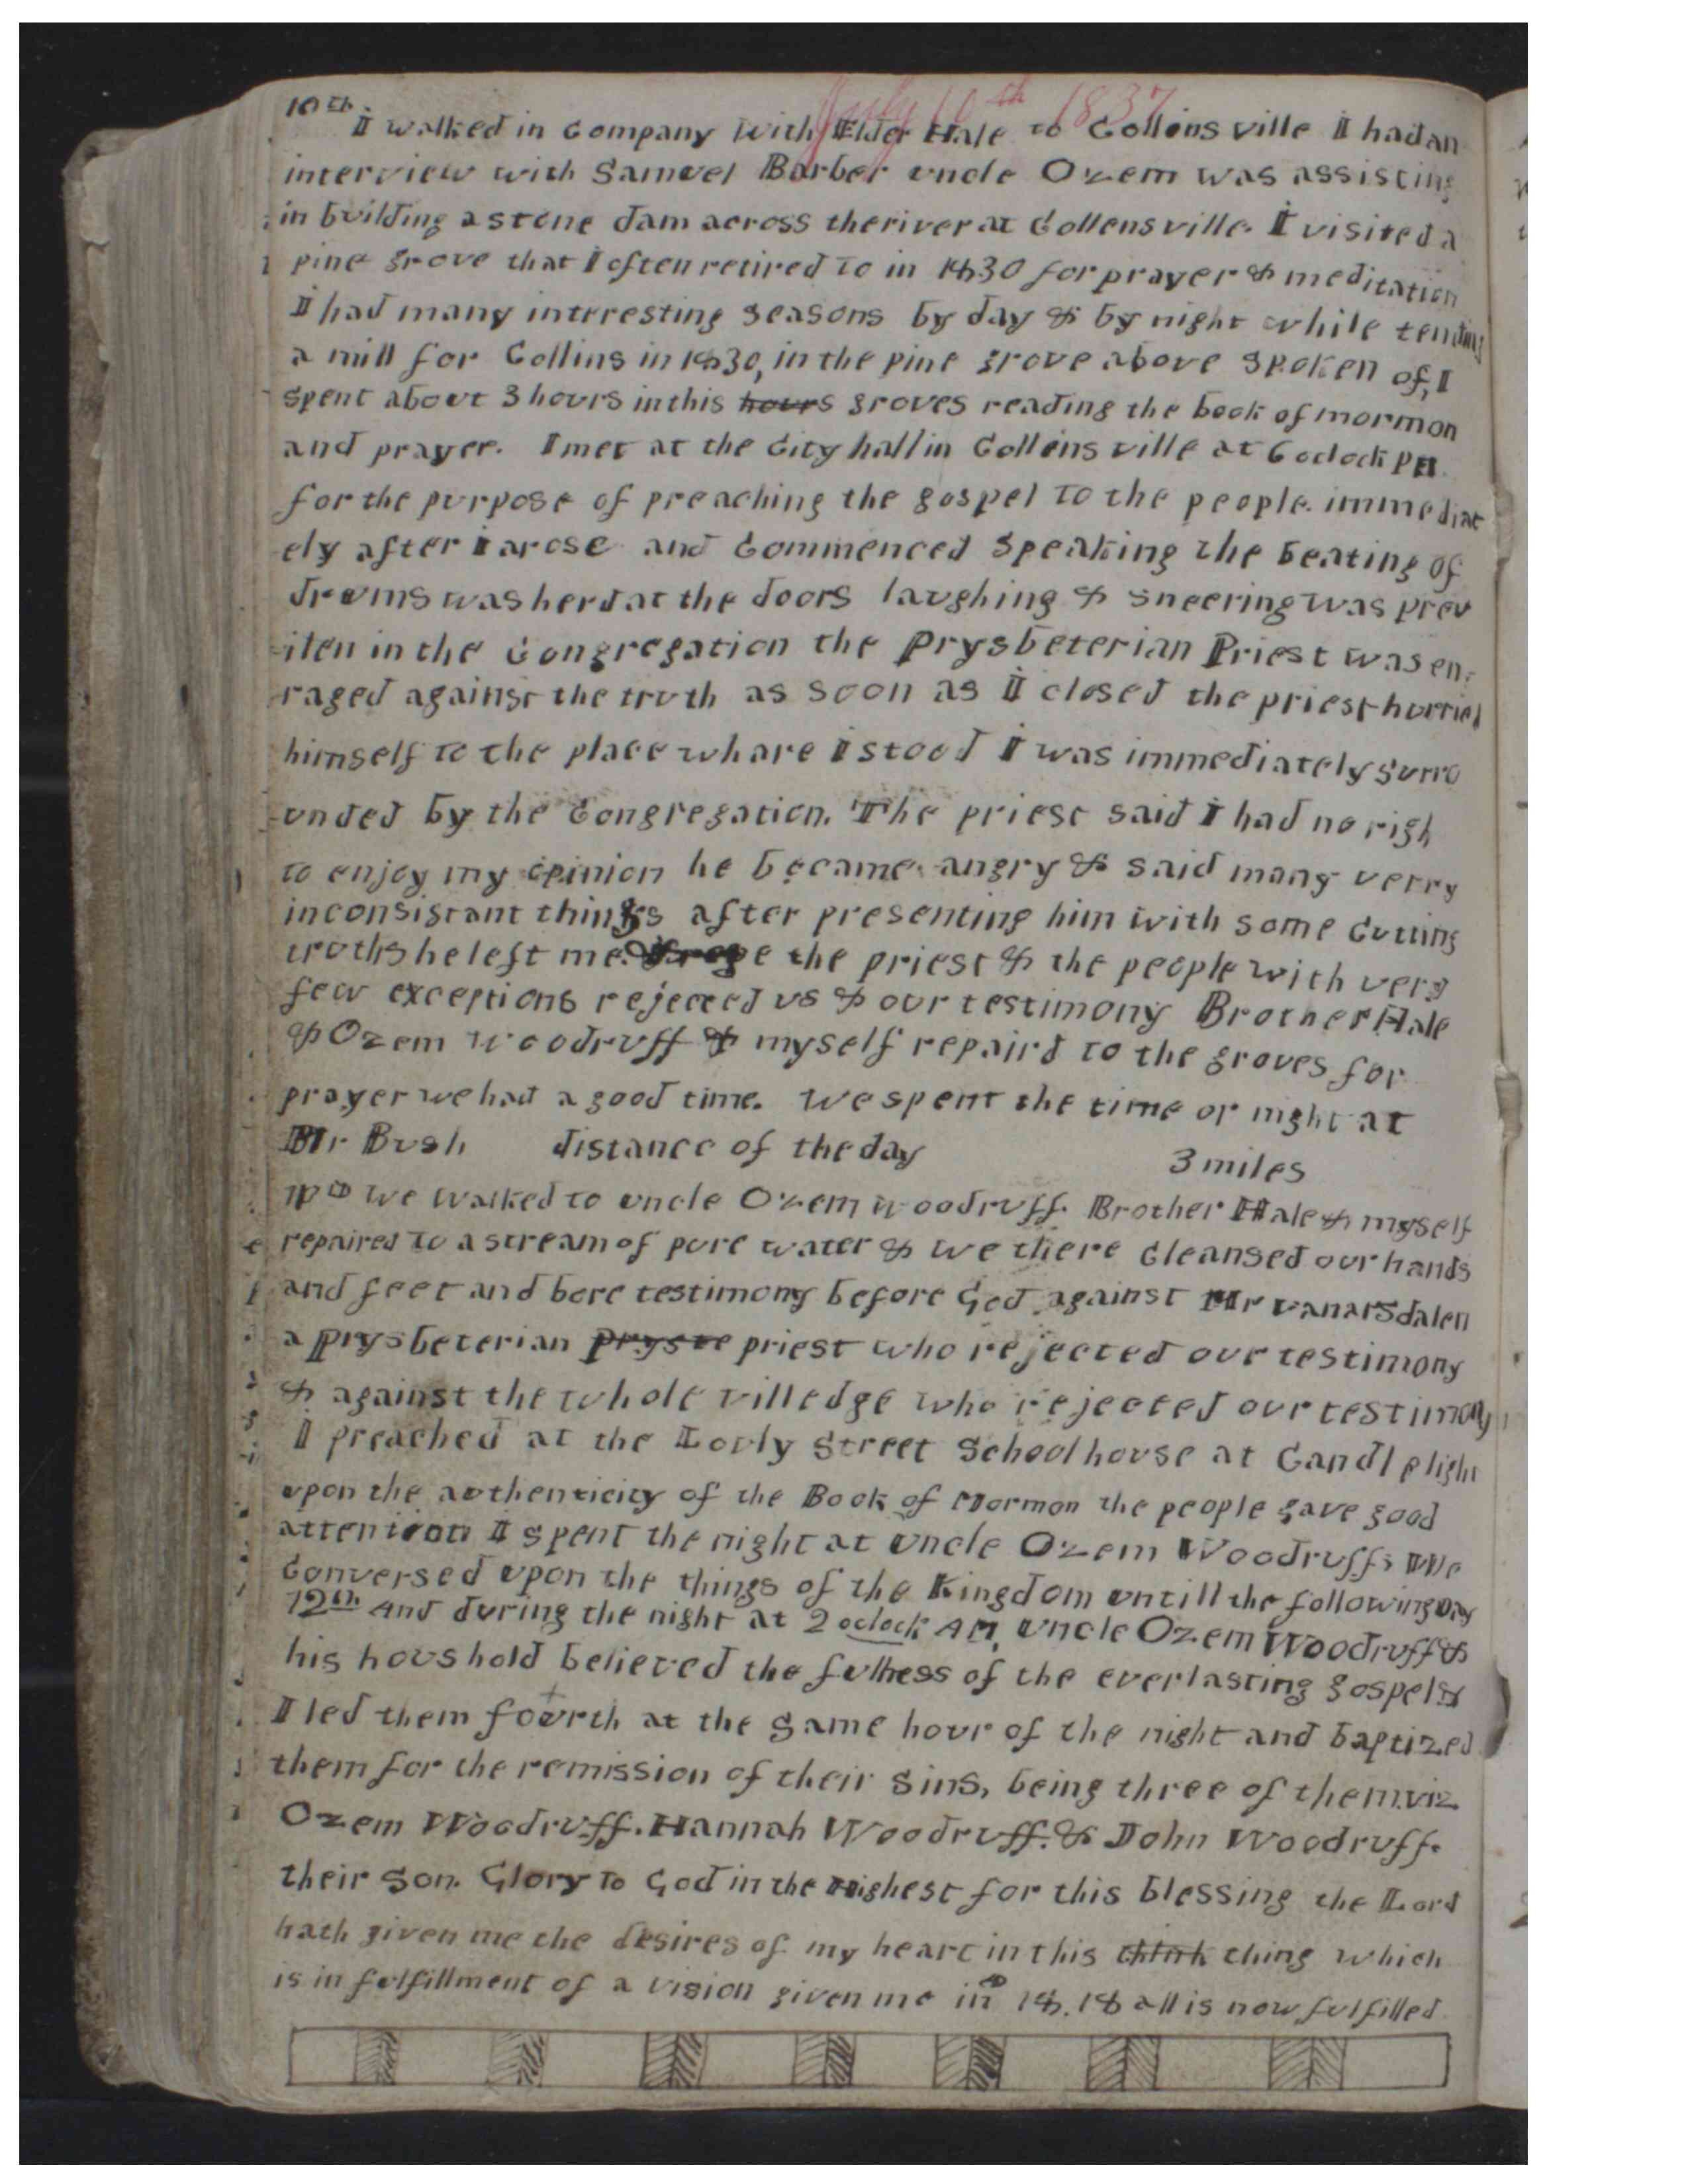 July 10th 1837
10th I walked in Company With Elder Hale to Collensville I had an
interview with Samuel Barber uncle Ozem was assisting
in building a stone dam across the river at Collensville. I visited a
pine grove that I often retired to in 1830 for prayer & meditation
I had many interesting seasons by day & by night while tending
a mill for Collins in 1830, in the pine grove above spoken of, I
spent about 3 hours in this hours groves reading the book of mormon
and prayer. I met at the City hall in Collensville at 6 oclock PM
for the purpose of preaching the gospel to the people. immediat
ely after I arose and Commenced speaking the beating of
drums was herd at the doors laughing & sneering was prev
ilen in the Congregation the Prysbeterian Priest was en-
raged against the truth as soon as I closed the priest hurried
himself to the place whare I stood I was immediately surro
unded by the Congregation. The priest said I had no righ
to enjoy my opinion he became angry & said many verry
inconsistant things after presenting him with some Cutting
truths he left me. the priest & the people with very
few exceptions rejected us & our testimony Brother Hale
& Ozem Woodruff & myself repaird to the groves for
prayer we had a good time. We spent the time or night at
Mr Bush distance of the day 3 miles
we walked to uncle Ozem Woodruff. Brother Hale & myself
repaired to a stream of pure water & we there Cleansed our hands
and feet and bore testimony before God against Mr vanarsdalen
a Prysbeterian pryste priest who rejected our testimony
& against the whole villedge who rejected our testimony
I preached at the Lovly Street School house at Candle light
upon the authenticity of the Book of Mormon the people gave good
attention I spent the night at Uncle Ozem Woodruffs We
Conversed upon the things of the Kingdom untill the following day
12th And during the night at 2 oclock AM, Uncle Ozem Woodruff &
his houshold believed the fulness of the everlasting gospel &
I led them fourth at the same hour of the night and baptized
them for the remission of their sins, being three of them. viz
Ozem Woodruff. Hannah Woodruff. & John Woodruff.
their Son. Glory to God in the highest for this blessing the Lord
hath given me the desires of my heart in this think thing which
is in fulfillment of a vision given me in 18.18 all is now fulfilled